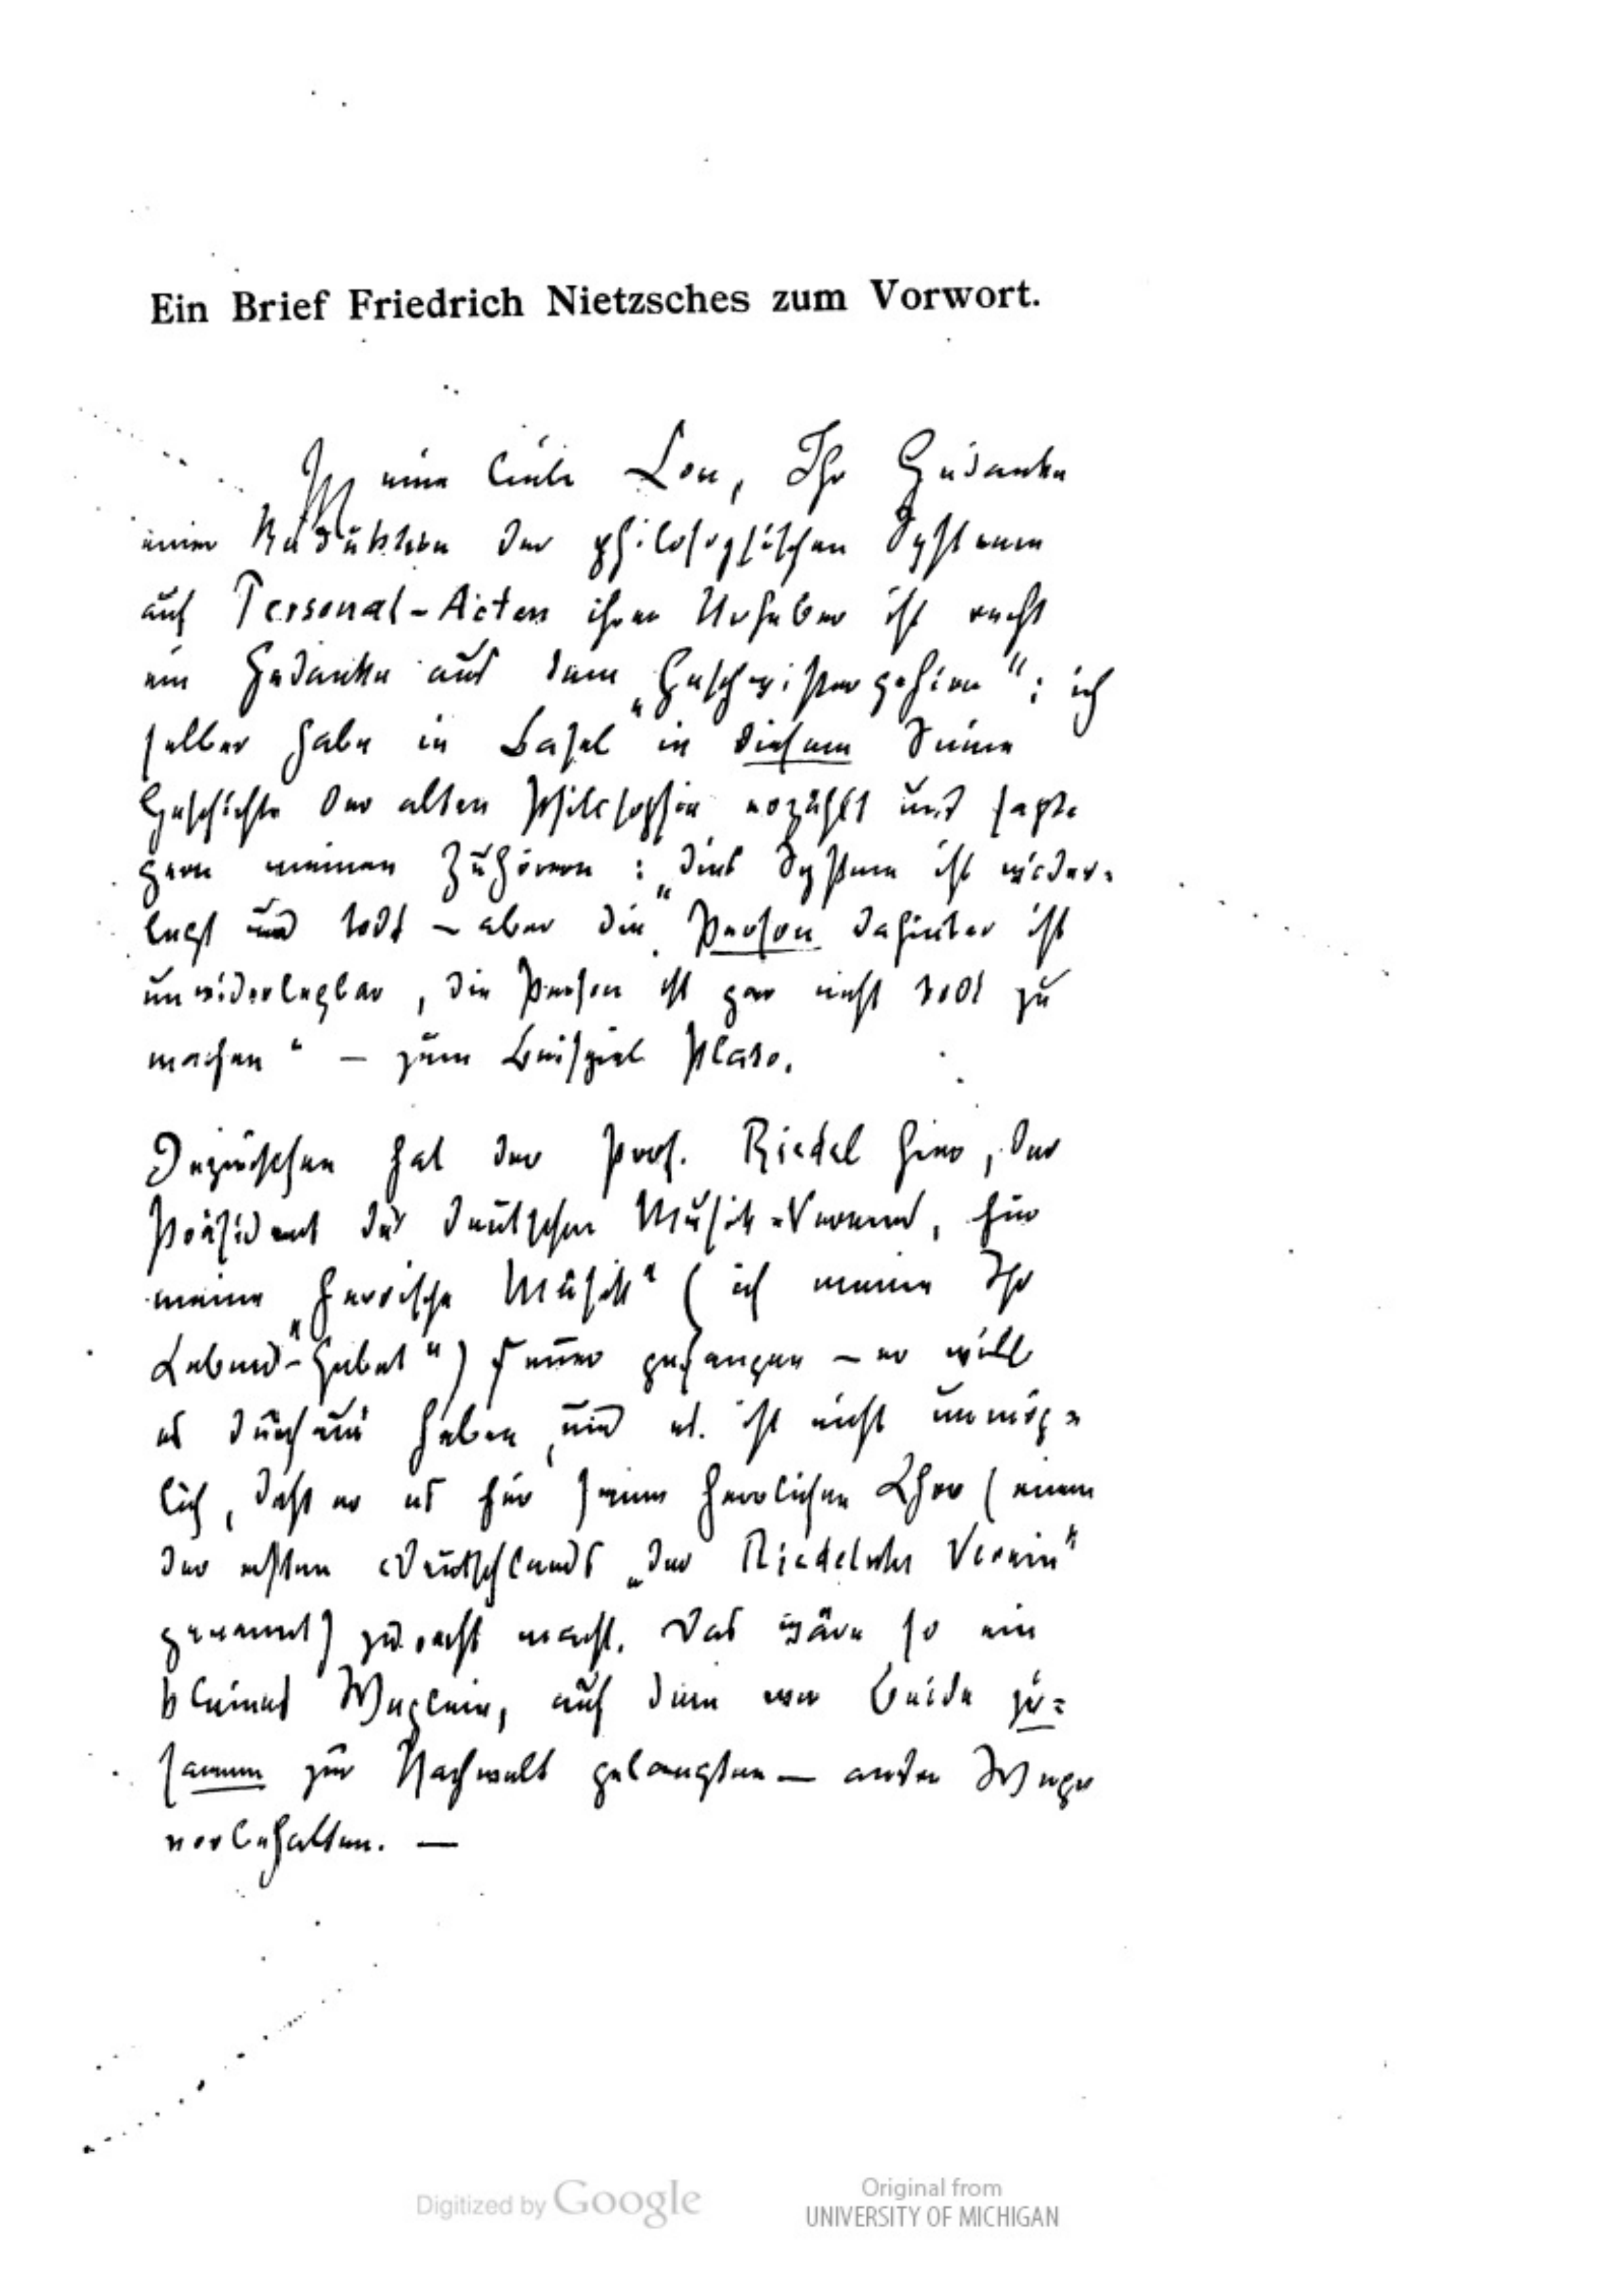 Ein Brief Friedrich Nietzsches zum Vorwort.
Meine liebe Lou, Ihr Gedanke
einer Reduktion der philosophischen Systeme
auf Personal-Acten ihrer Urheber ist recht
ein Gedanke aus dem „Geschwistergehirn“: ich
selber habe in Basel in diesem Sinne
Geschichte der alten Philosophie erzählt und sagte
gern meinen Zuhörern: „dies System ist wider-
legt und todt — aber die Person dahinter ist
unwiderlegbar, die Person ist gar nicht todt zu
machen“ — zum Beispiel Plato.
Inzwischen hat der Prof. Riedel hier, der
Präsident des deutschen Musik-Vereins, für
meine „heroische Musik“ (ich meine Ihr
„Lebens-Gebet“) Feuer gefangen — er will
es durchaus haben, und es ist nicht unmög-
lich, daß er es für seinen herrlichen Chor (einen
der ersten Deutschlands „der Riedelsche Verein“
genannt) zurecht macht. Das wäre so ein
kleines Weglein, auf dem wir Beide zu-
sammen zur Nachwelt gelangten — andre Wege
vorbehalten. —
Digitized by Google
Original from
UNIVERSITY OF MICHIGAN